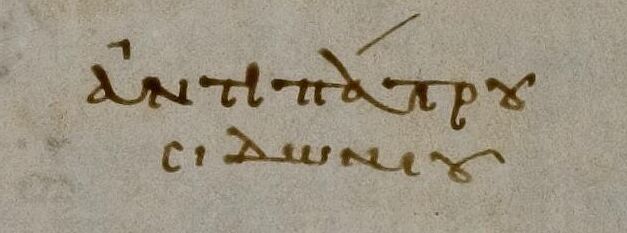 ἀντιπάτρου
σιδωνίου